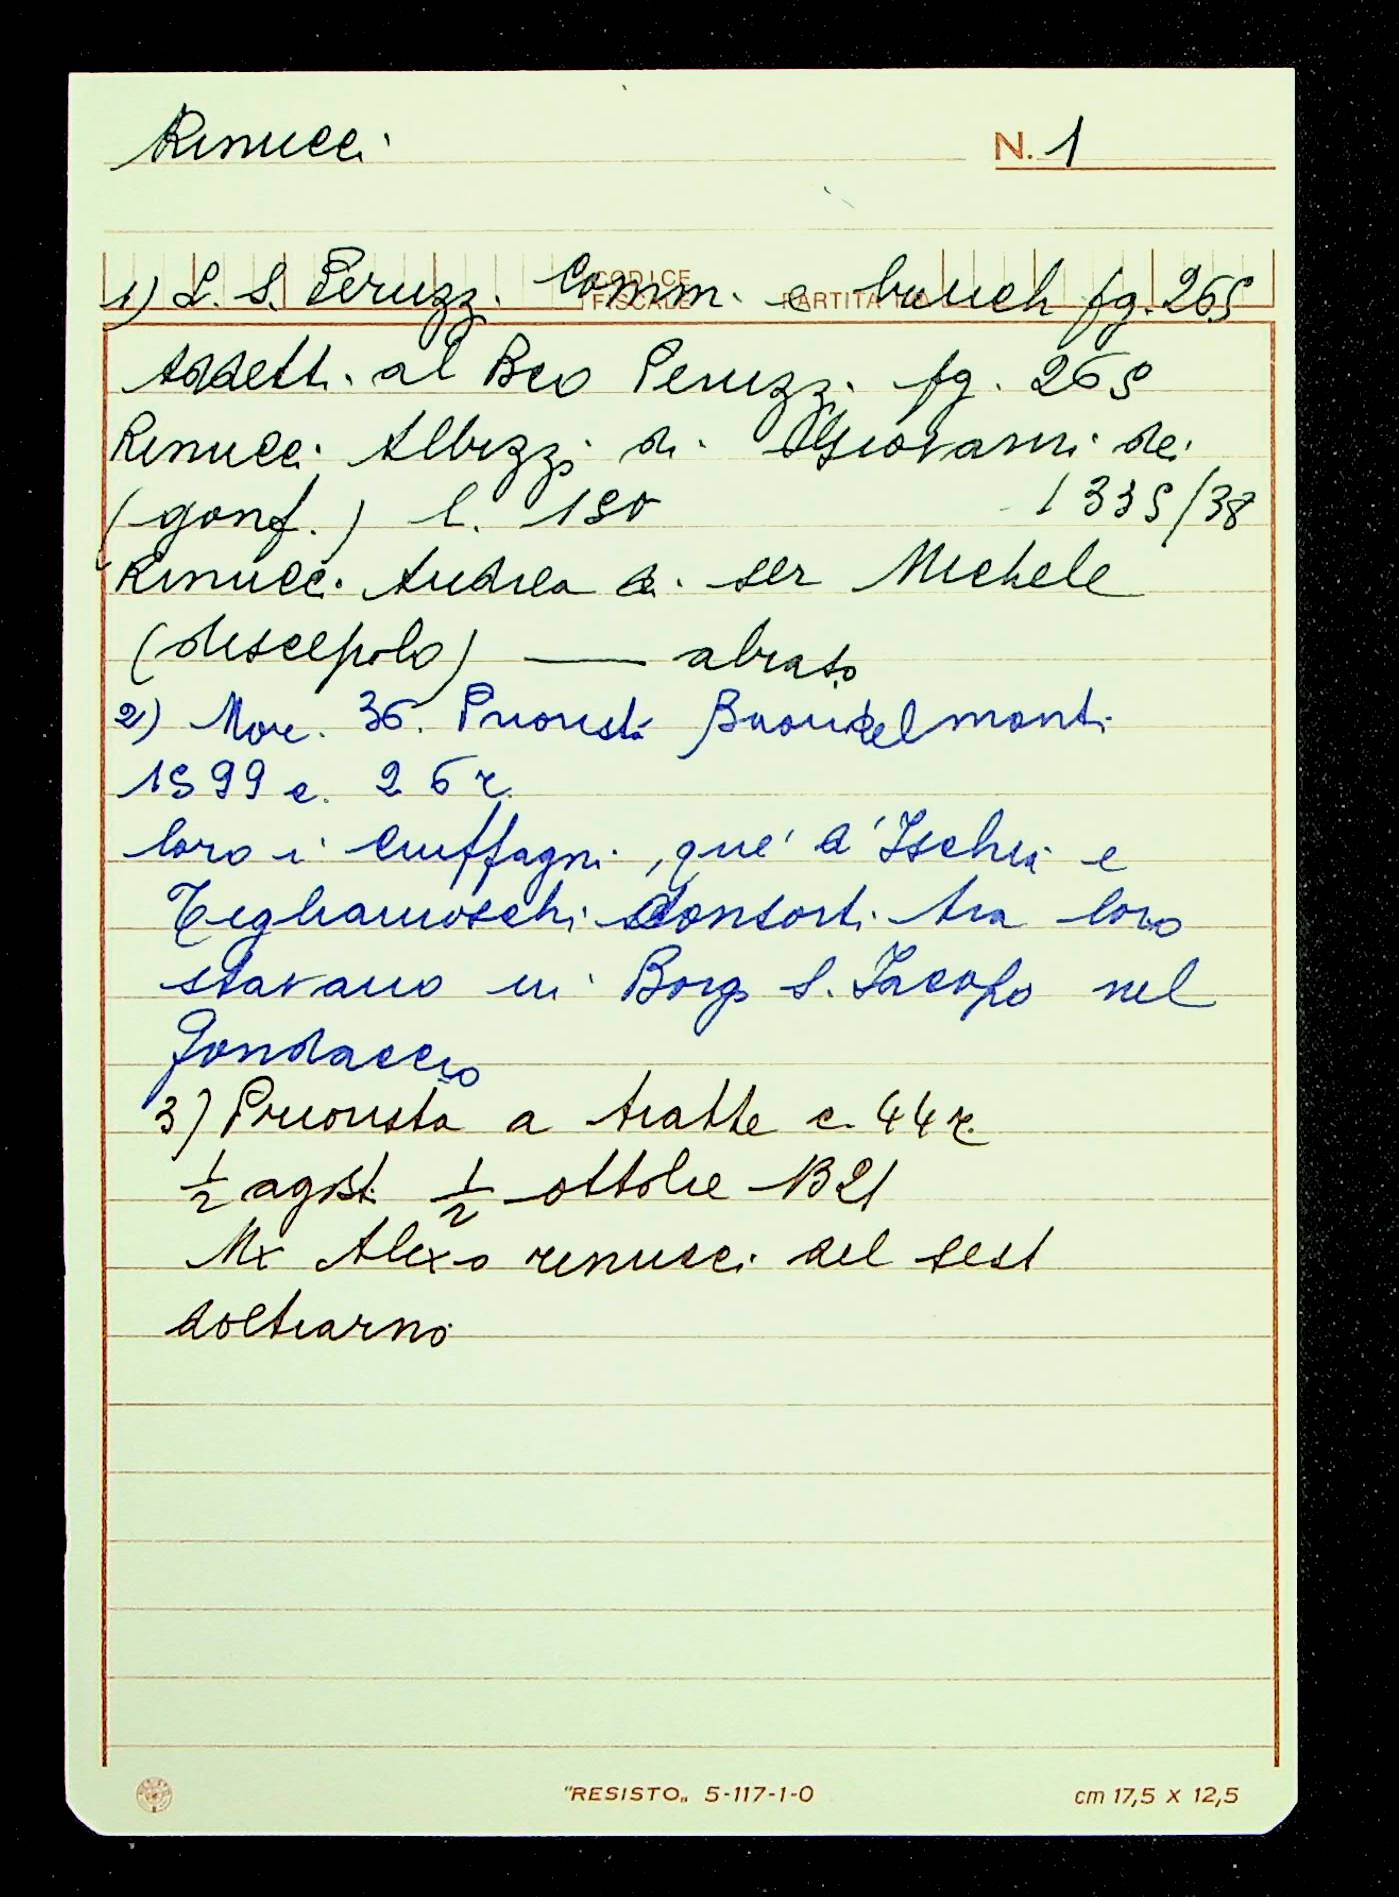 Rinucci N. 1
CODICE FISCALE PARTITA
1) L. S. Peruzzi Comm. e banch fg. 265
Addetti al Bco Peruzzi fg. 265
Rinucci Albizzi di Giovanni dei
(gonf.) l. 150 1335/38
Rinucci Andrea di ser Michele
(discepolo) — abraso
2) Mor. 36. Priorista Buondelmonti
1599 c. 26 r.
loro i Ciuffagni, que' d'Ischia e
Tegliamochi consorti tra loro
stavano in Borgo S. Jacopo nel
fondaccio
3) Priorista a tratte c. 44 r.
½ agost. ½ ottobre 1321
Mr Alexo renucci del sest
doltrarno
"RESISTO„ 5-117-1-0 cm 17,5 x 12,5